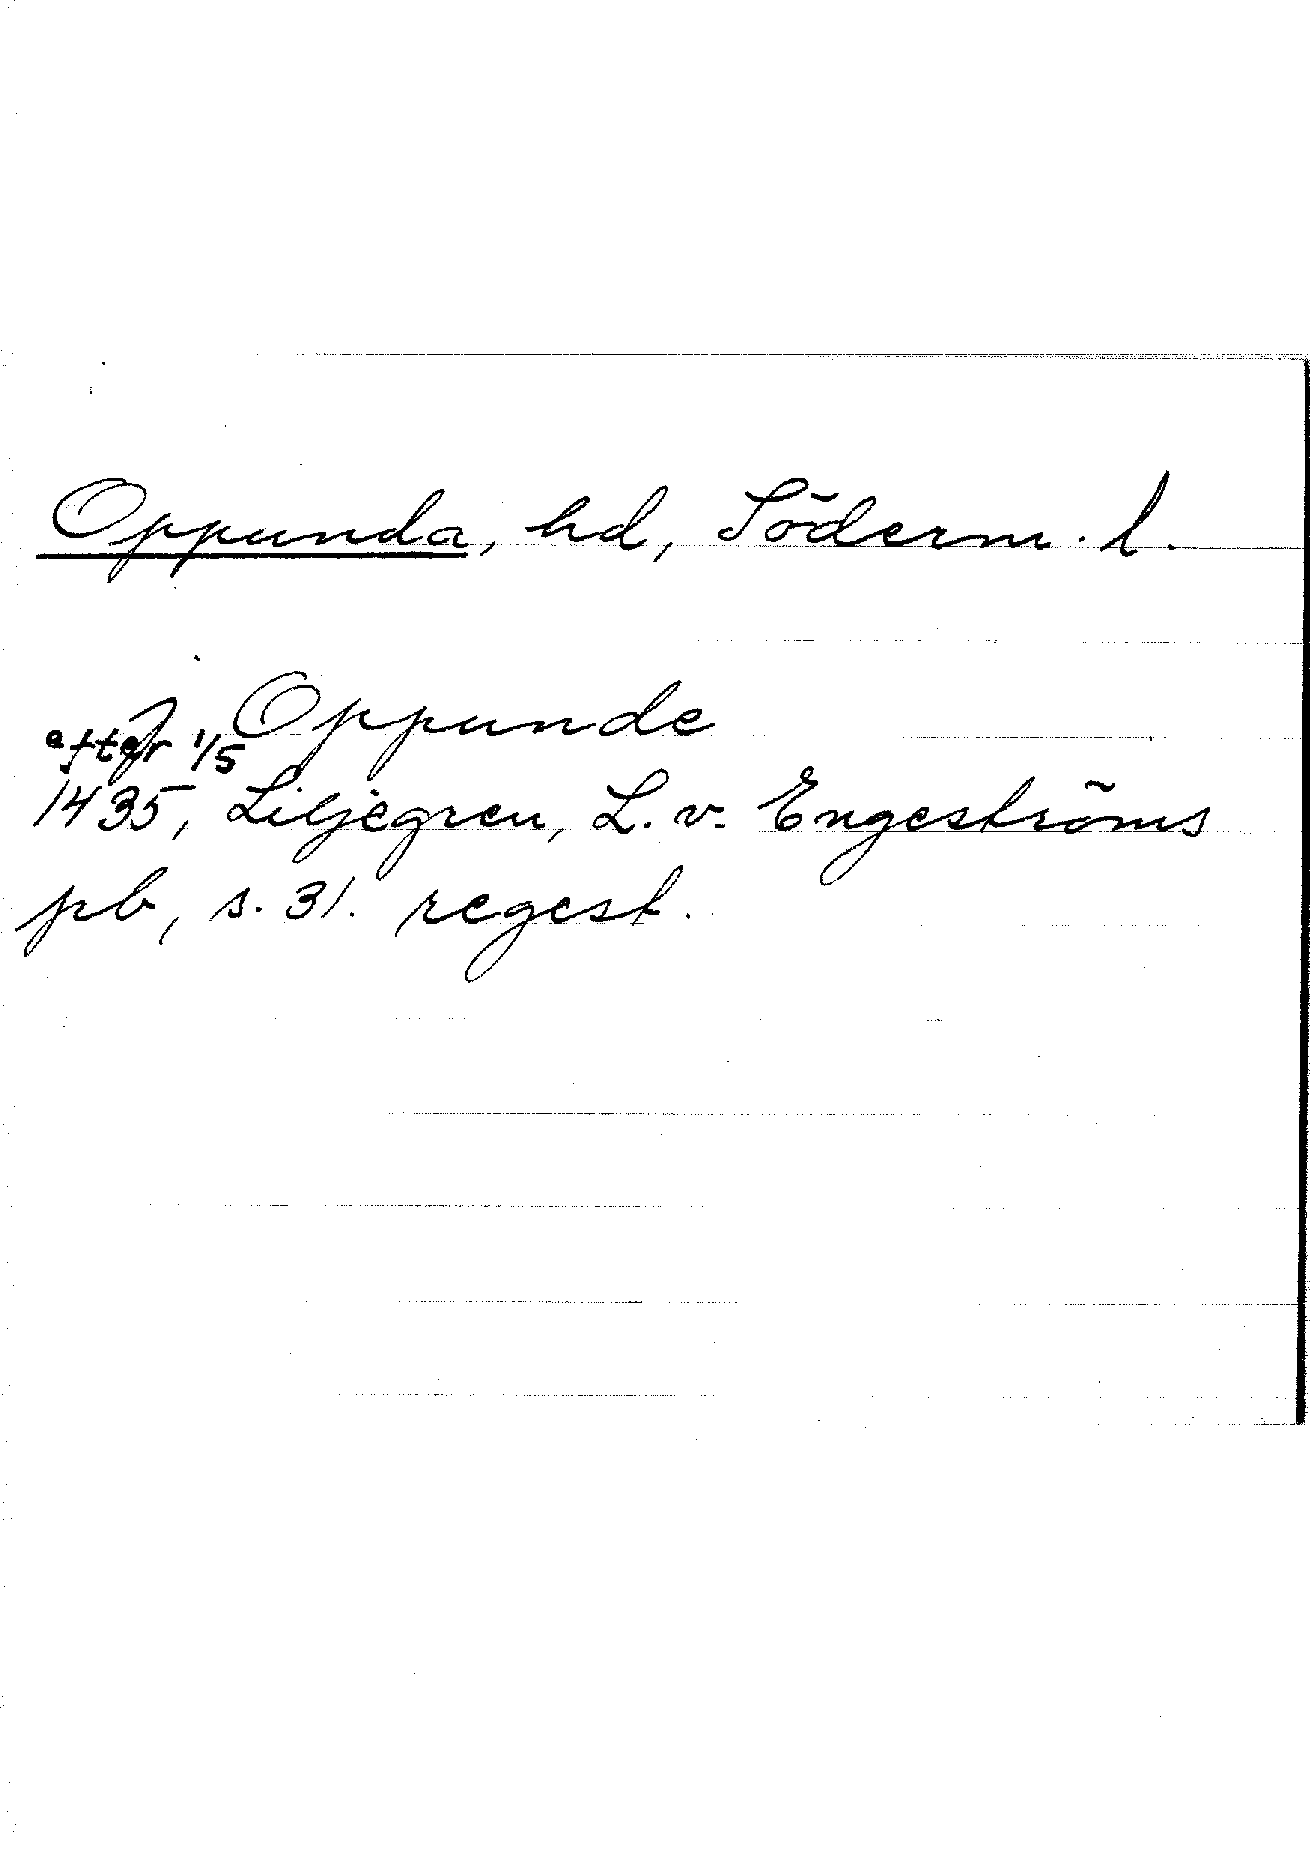 Oppunda, hd, Söderm. l.
Oppunde
efter 1/5
1435, Liljegren, L. v. Engeströms
pb, s. 31. regest.